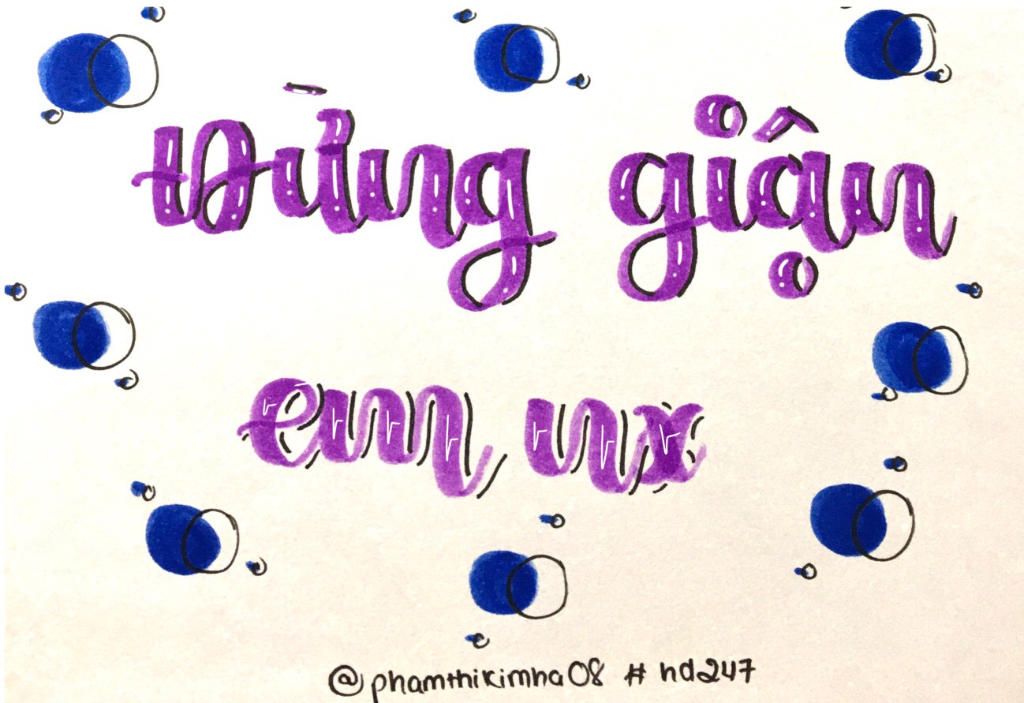 Đừng giận
em nx
@phamthikimha08 # hd247